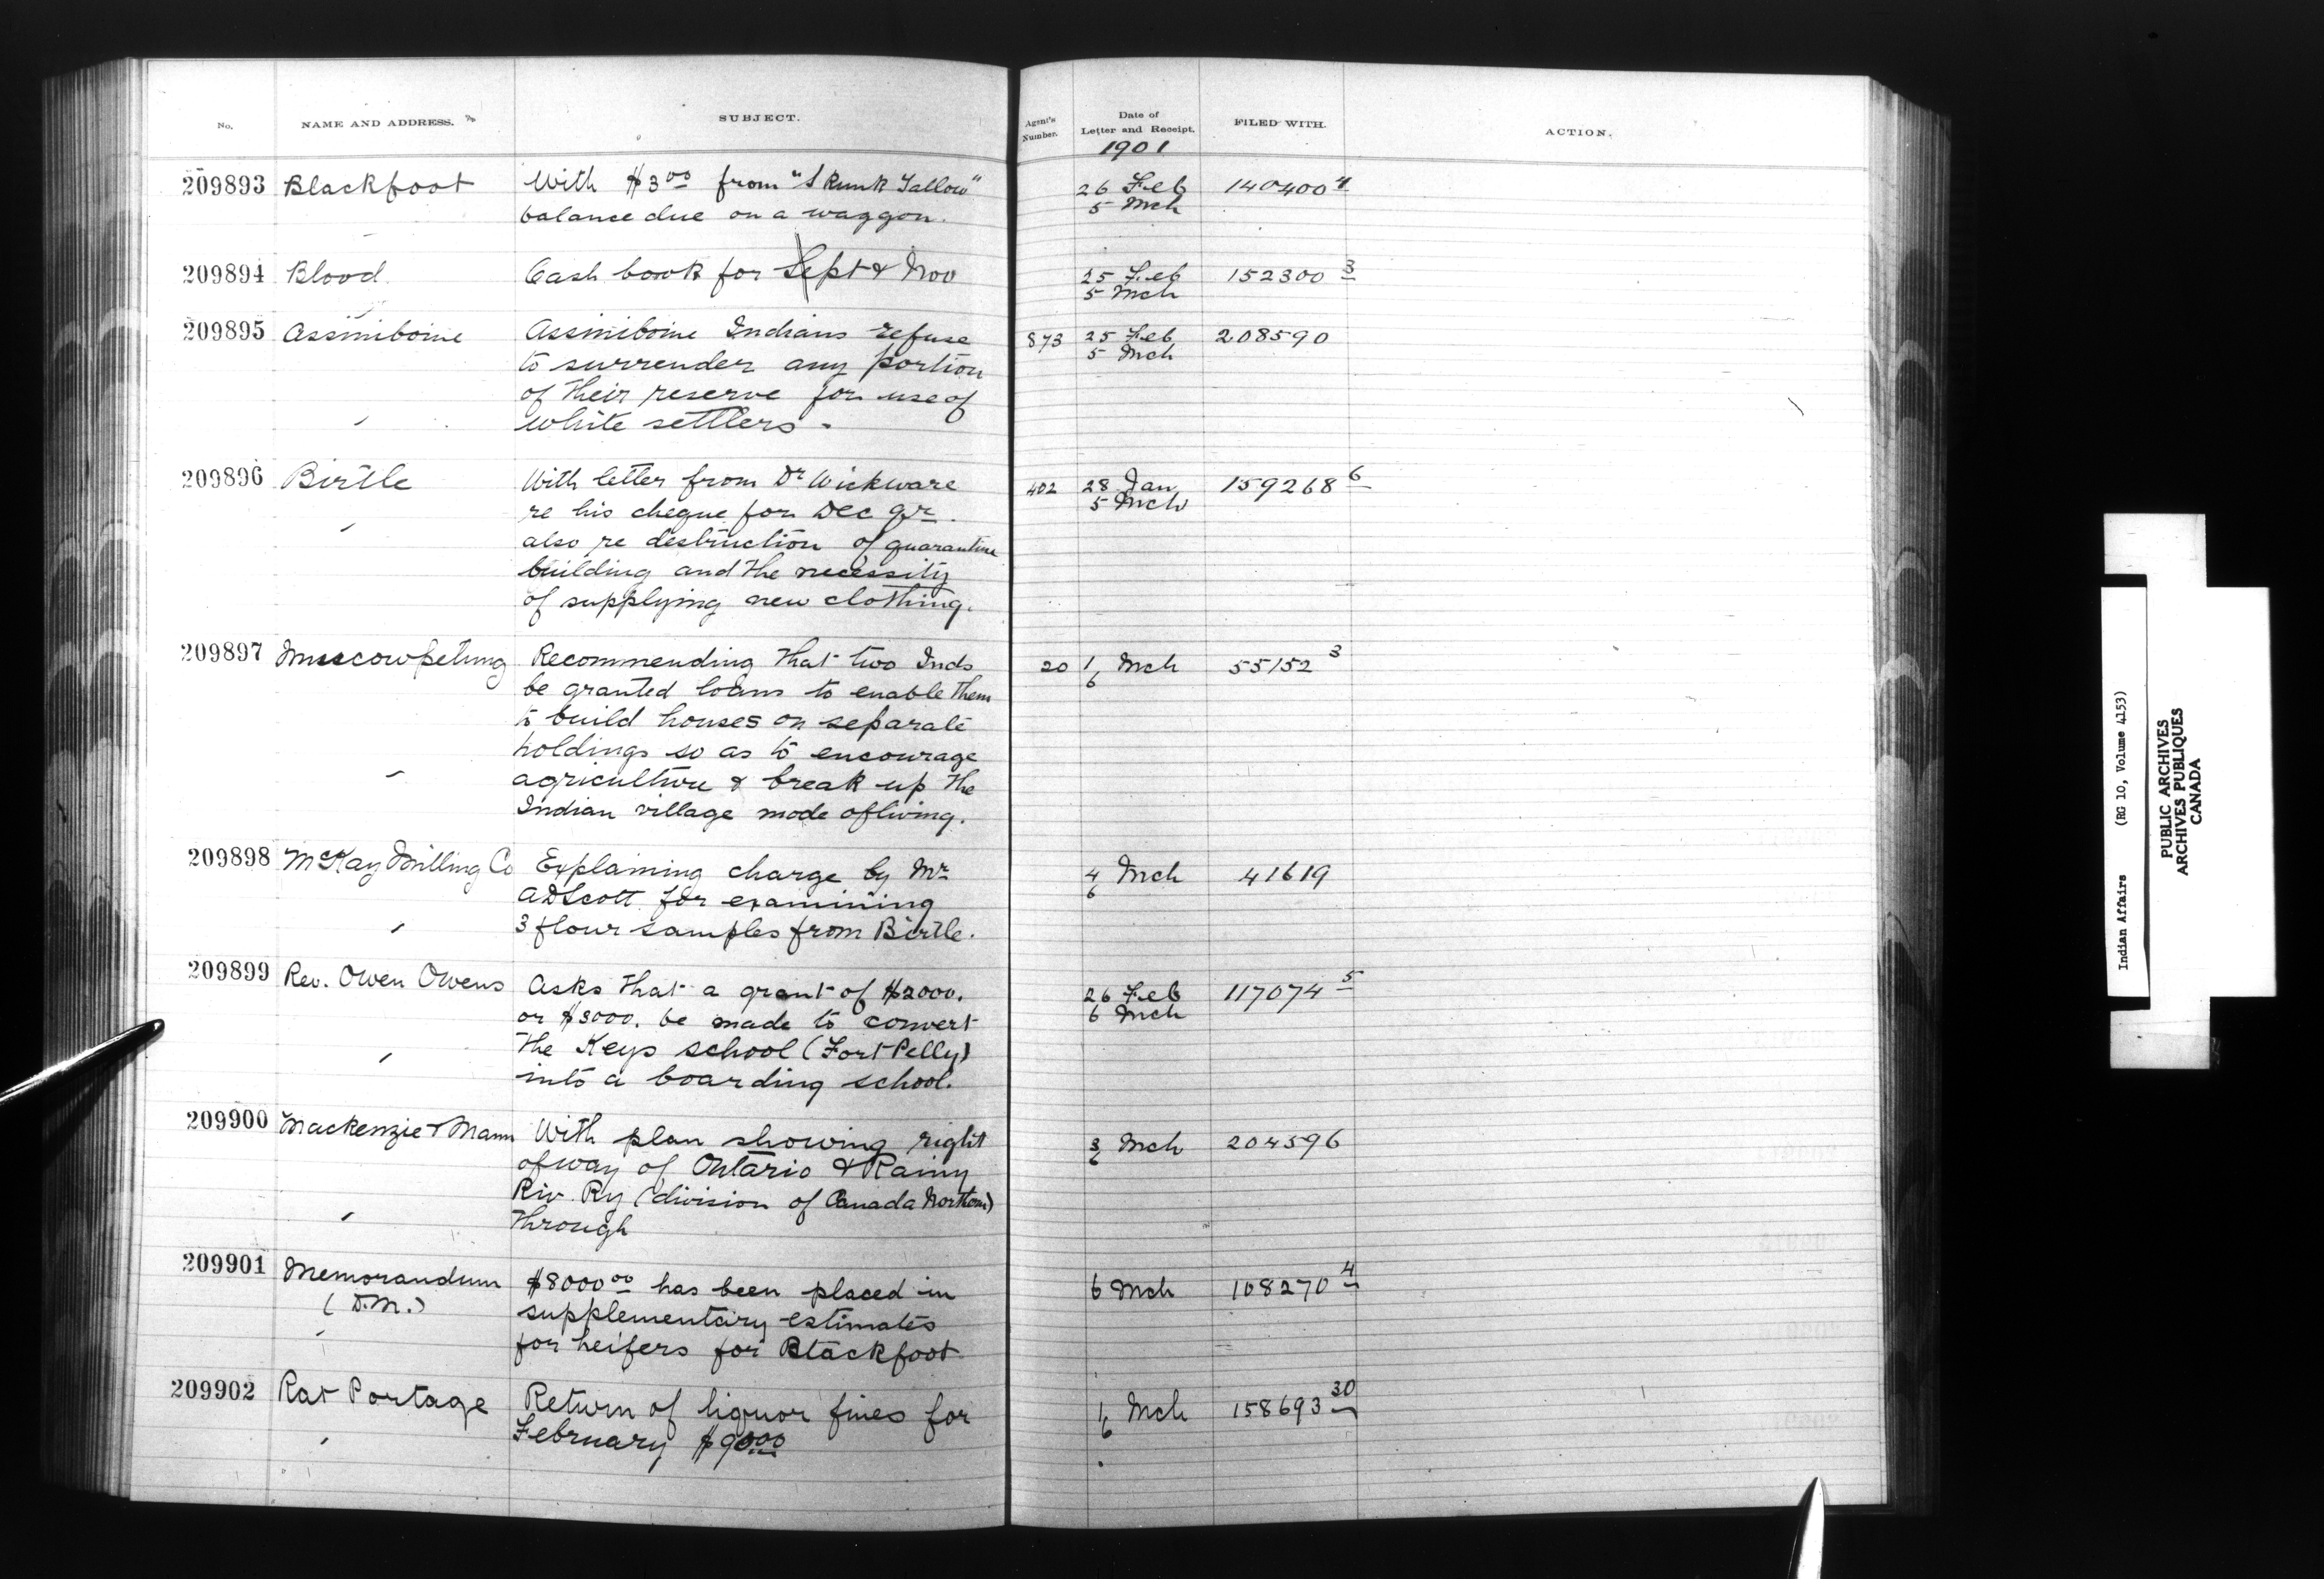 No. NAME AND ADDRESS. SUBJECT. Agent's Number. Date of Letter and Receipt. FILED WITH. ACTION.
1901
209893 Blackfoot With $3.00 from "Skunk Tallow" 26 Feb 140400 4
balance due on a waggon. 5 Mch
209894 Blood Cash book for Sept & Nov 25 Feb 152300 3
5 Mch
209895 Assiniboine Assiniboine Indians refuse 873 25 Feb 208590
to surrender any portion 5 Mch
of their reserve for use of
white settlers.
209896 Birtle With letter from Dr Wickware 402 28 Jan 159268 6
re his cheque for Dec qr. 5 Mch
also re destruction of quarantine
building and the necessity
of supplying new clothing.
209897 Muscowpetung Recommending that two Inds 20 1 Mch 55152 3
be granted loans to enable them 6
to build houses on separate
holdings so as to encourage
agriculture & break up the
Indian village mode of living.
209898 McKay Milling Co Explaining charge by Mr 4 Mch 41619
AD Scott for examining 6
3 flour samples from Birtle.
209899 Rev. Owen Owens Asks that a grant of $2000. 26 Feb 117074 5
or $3000. be made to convert 6 Mch
the Keys school (Fort Pelly)
into a boarding school.
209900 Mackenzie & Mann With plan showing right 3 Mch 204596
of way of Ontario & Rainy 6
Riv. Ry (division of Canada Northern)
through
209901 Memorandum $8000.00 has been placed in 6 Mch 108270 4
(D.M.) supplementary estimates
for heifers for Blackfoot
209902 Rat Portage Return of liquor fines for 1 Mch 158693 30
February $90.00 6
Indian Affairs (RG 10, Volume 4153)
PUBLIC ARCHIVES
ARCHIVES PUBLIQUES
CANADA